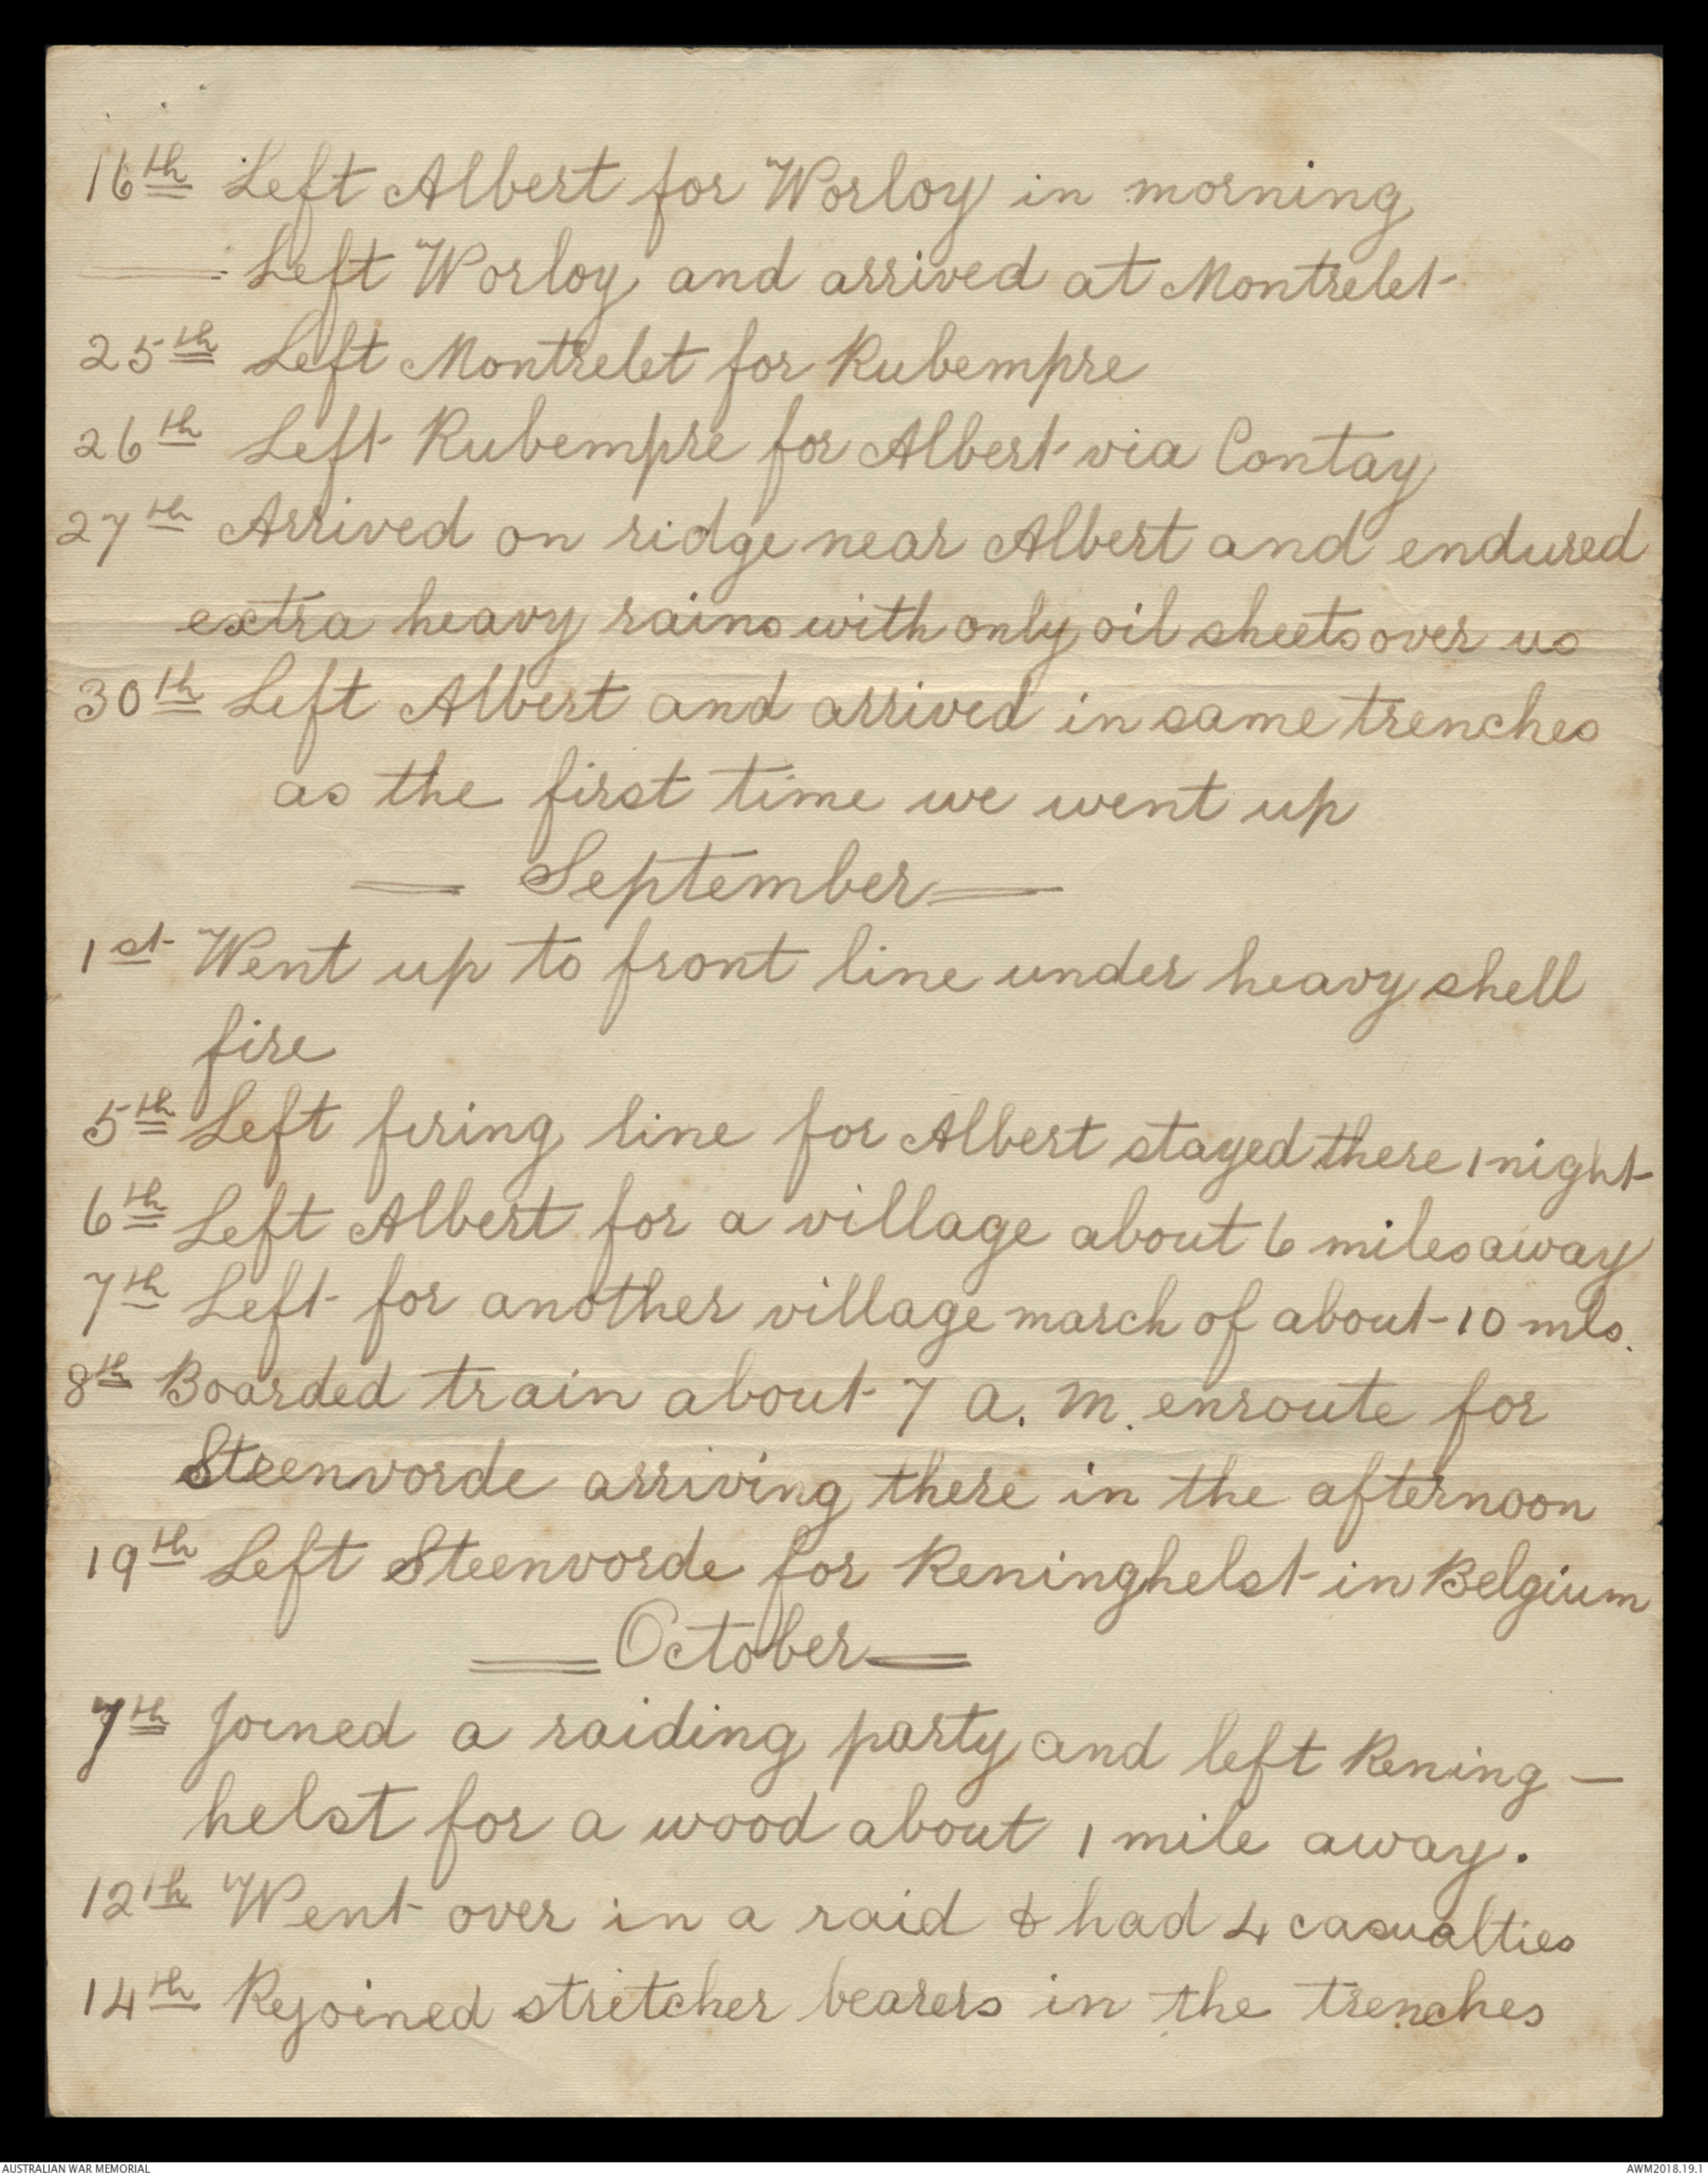 16th Left Albert for Worloy in morning
Left Worloy and arrived at Montrelet
25th Left Montrelet for Rubempre
26th Left Rubempre for Albert via Contay
27th Arrived on ridge near Albert and endured
extra heavy rains with only oil sheets over us
30th Left Albert and arrived in same trenches
as the first time we went up
September
1st Went up to front line under heavy shell
fire
5th Left firing line for Albert stayed there 1 night
6th Left Albert for a village about 6 miles away
7th Left for another village march of about 10 mls.
8th Boarded train about 7 a.m. enroute for
Steenvorde arriving there in the afternoon
19th Left Steenvorde for Reninghelst in Belgium
October
7th Joined a raiding party and left Rening-
helst for a wood about 1 mile away.
12th Went over in a raid & had 4 casualties
14th Rejoined stretcher bearers in the trenches
AUSTRALIAN WAR MEMORIAL
AWM2018.19.1